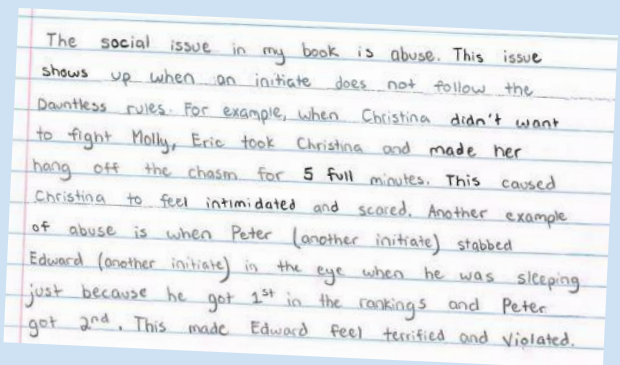 The social issue in my book is abuse. This issue
shows up when an initiate does not follow the
Dauntless rules. For example, when Christina didn't want
to fight Molly, Eric took Christina and made her
hang off the chasm for 5 full minutes. This caused
Christina to feel intimidated and scared. Another example
of abuse is when Peter (another initiate) stabbed
Edward (another initiate) in the eye when he was sleeping
just because he got 1st in the rankings and Peter
got 2nd. This made Edward feel terrified and violated.